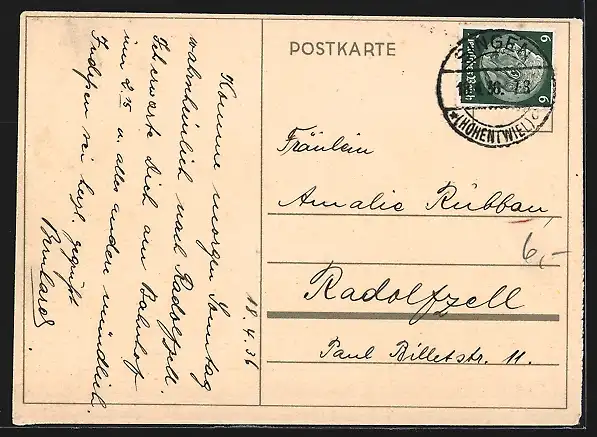 POSTKARTE
SINGEN
(HOHENTWIEL)
6
6
Fräulein
Amalie Rübbau,
6,-
Radolfzell
Paul Billetstr. 11.
18.4.36
Komme morgen Sonntag
wahrscheinlich nach Radolfzell.
Erwarte Dich am Bahnhof
um 2.15 u. alles andere mündlich.
Indessen sei herzl. gegrüßt
Bernhard